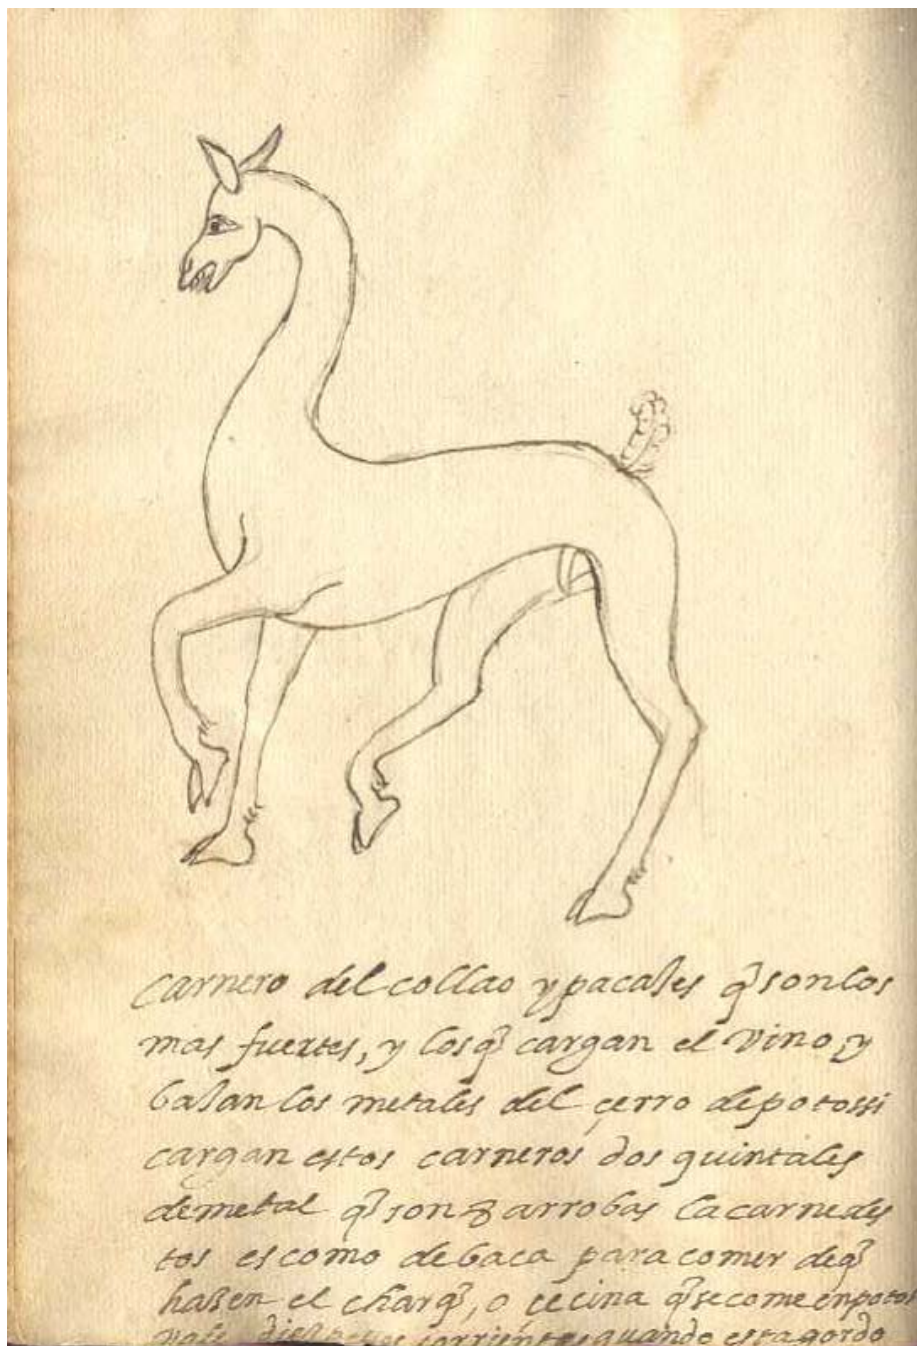 Carnero del collao y pacases q̃ son los
mas fuertes, y los q̃ cargan el vino, y
baxan los metales del çerro de potossi
cargan estos carneros dos quintales
de metal q̃ son 8 arrobas la carne des
tos es como de baca para comer de q̃
hazen el charq̃, o çecina q̃ se come en potos
vale diez pesos corrientes quando esta gordo